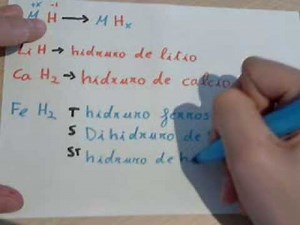 +x -1
M H → M Hx
Li H → hidruro de litio
Ca H2 → hidruro de calcio
Fe H2 T hidruro ferros
S Dihidruro de
St hidruro de h